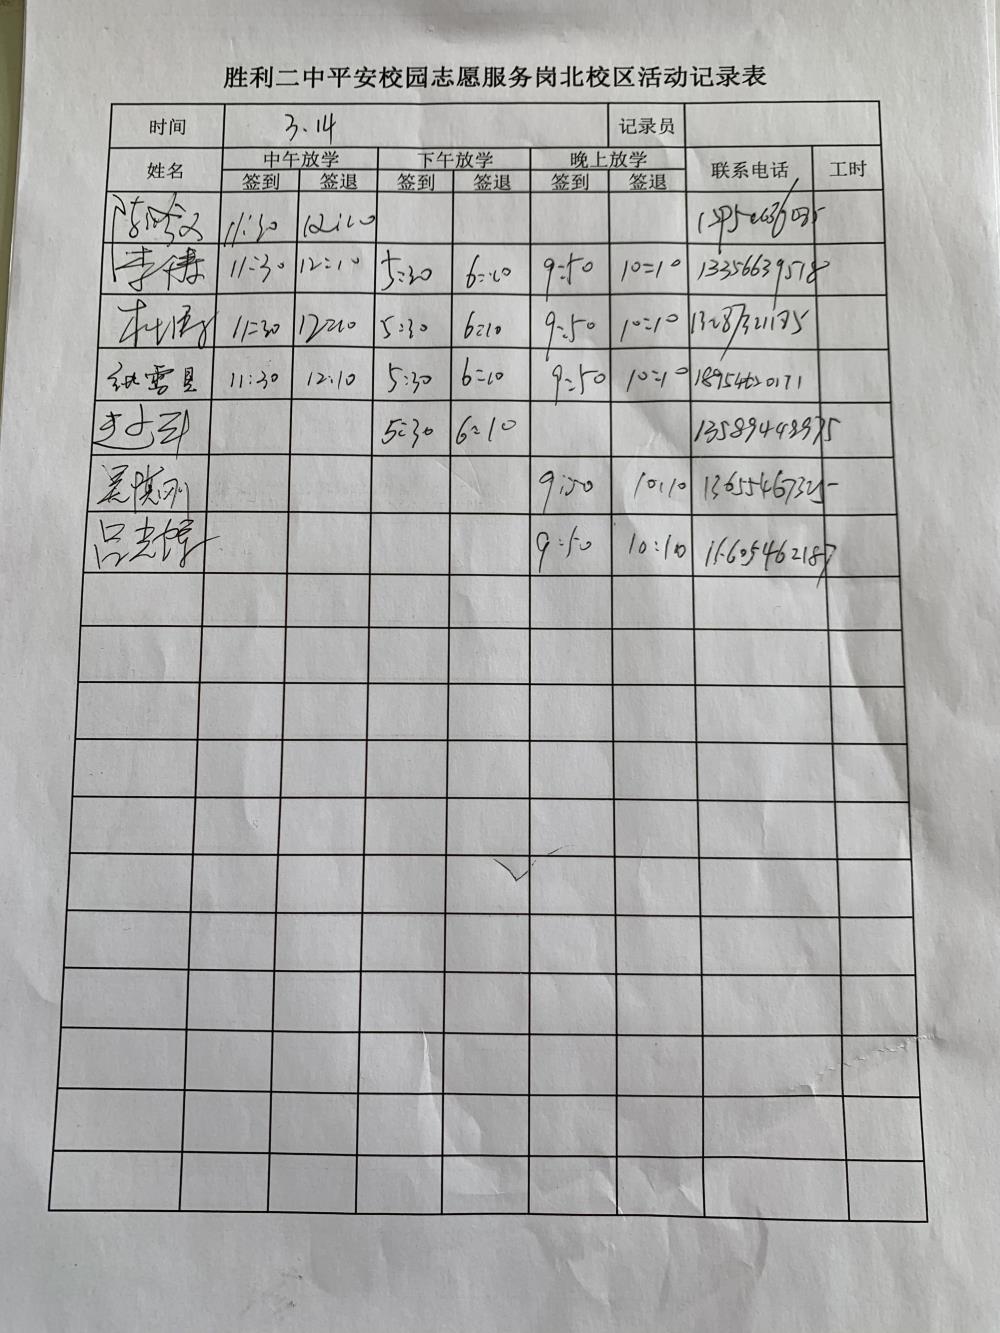 胜利二中平安校园志愿服务岗北校区活动记录表
时间 3.14 记录员
姓名 中午放学 下午放学 晚上放学 联系电话 工时
签到 签退 签到 签退 签到 签退
11:30 12:10
11:30 12:10 5:30 6:10 9:50 10:10 13356639518
11:30 12:10 5:30 6:10 9:50 10:10
11:30 12:10 5:30 6:10 9:50 10:10 18954620171
5:30 6:10 13589448975
9:50 10:10 13655467325
9:50 10:10 15605462187